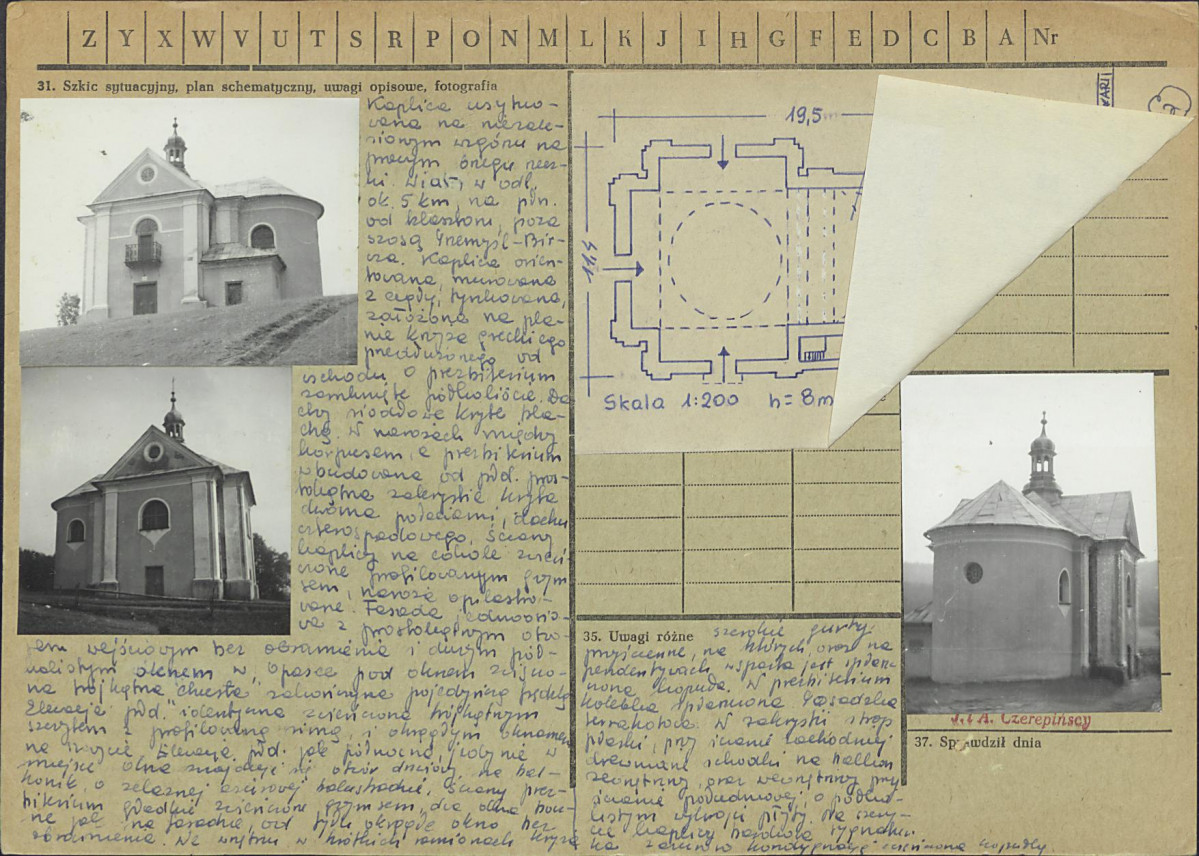 Z Y X W V U T S R P O N M L K J I H G F E D C B A Nr
31. Szkic sytuacyjny, plan schematyczny, uwagi opisowe, fotografia
Kaplica usytuo-
wana na niezale-
sionym wzgórzu na
prawym brzegu rzecz-
ki Wiar, w odl.
ok. 5 km, na płn.
od klasztoru, poza
szosą Przemyśl-Bir-
cza. Kaplica orien-
towana, murowana
z cegły, tynkowana,
założona na pla-
nie krzyża greckiego
przedłużonego od
wschodu o prezbiterium
zamknięte półkoliście. Da-
chy siodłowe kryte bla-
chą. W narożach między
korpusem, a prezbiterium
wbudowana od płd. pros-
tokątna zakrystia kryta
dwoma połaciami, dachu
czterospadowego. Ściany
kaplicy na cokole zwień-
czone profilowanym gzym
sem, naroża opilastro-
wane. Fasada jednoosio-
wa z prostokątnym otwo-
rem wejściowym bez obramienia i dużym pół-
kolistym oknem w opasce pod oknem
na trójkątna "chusta" zakończona pojedynczą
Elewacja płd. identyczna zwieńczona trójkątnym
szczytem z profilowaną ramą, i okrągłym oknem
na szczycie. Elewacja płd. jak północna, jedynie w
miejscu okna znajduje się otwór drzwiowy na bal-
konik, o żelaznej balustradzie. Ściany prez-
biterium gładkie zwieńczone gzymsem, dwa okna bocz-
ne jak na fasadzie, od tyłu okrągłe okno bez
obramienia. We wnętrzu w krótkich ramionach krzyża
19,5m
11,4
Skala 1:200 h= 8m
35. Uwagi różne szerokie gurty
przyścienne, na których, oraz na
pendentywach, wsparta jest spłasz-
czona kopuła. W prezbiterium
kolebka spłaszczona. Posadzka
terrakotowa. W zakrystii strop
płaski, przy ścianie zachodniej
drewniane schodki na balkon
zewnętrzny, oraz wewnętrzny przy
ścianie południowej, o półko-
listym wykroju płyty. Na szczy-
cie kaplicy sygnaturka
kondygnację zwieńczona kopułą
J. i A. Czerepińscy
37. Sprawdził dnia